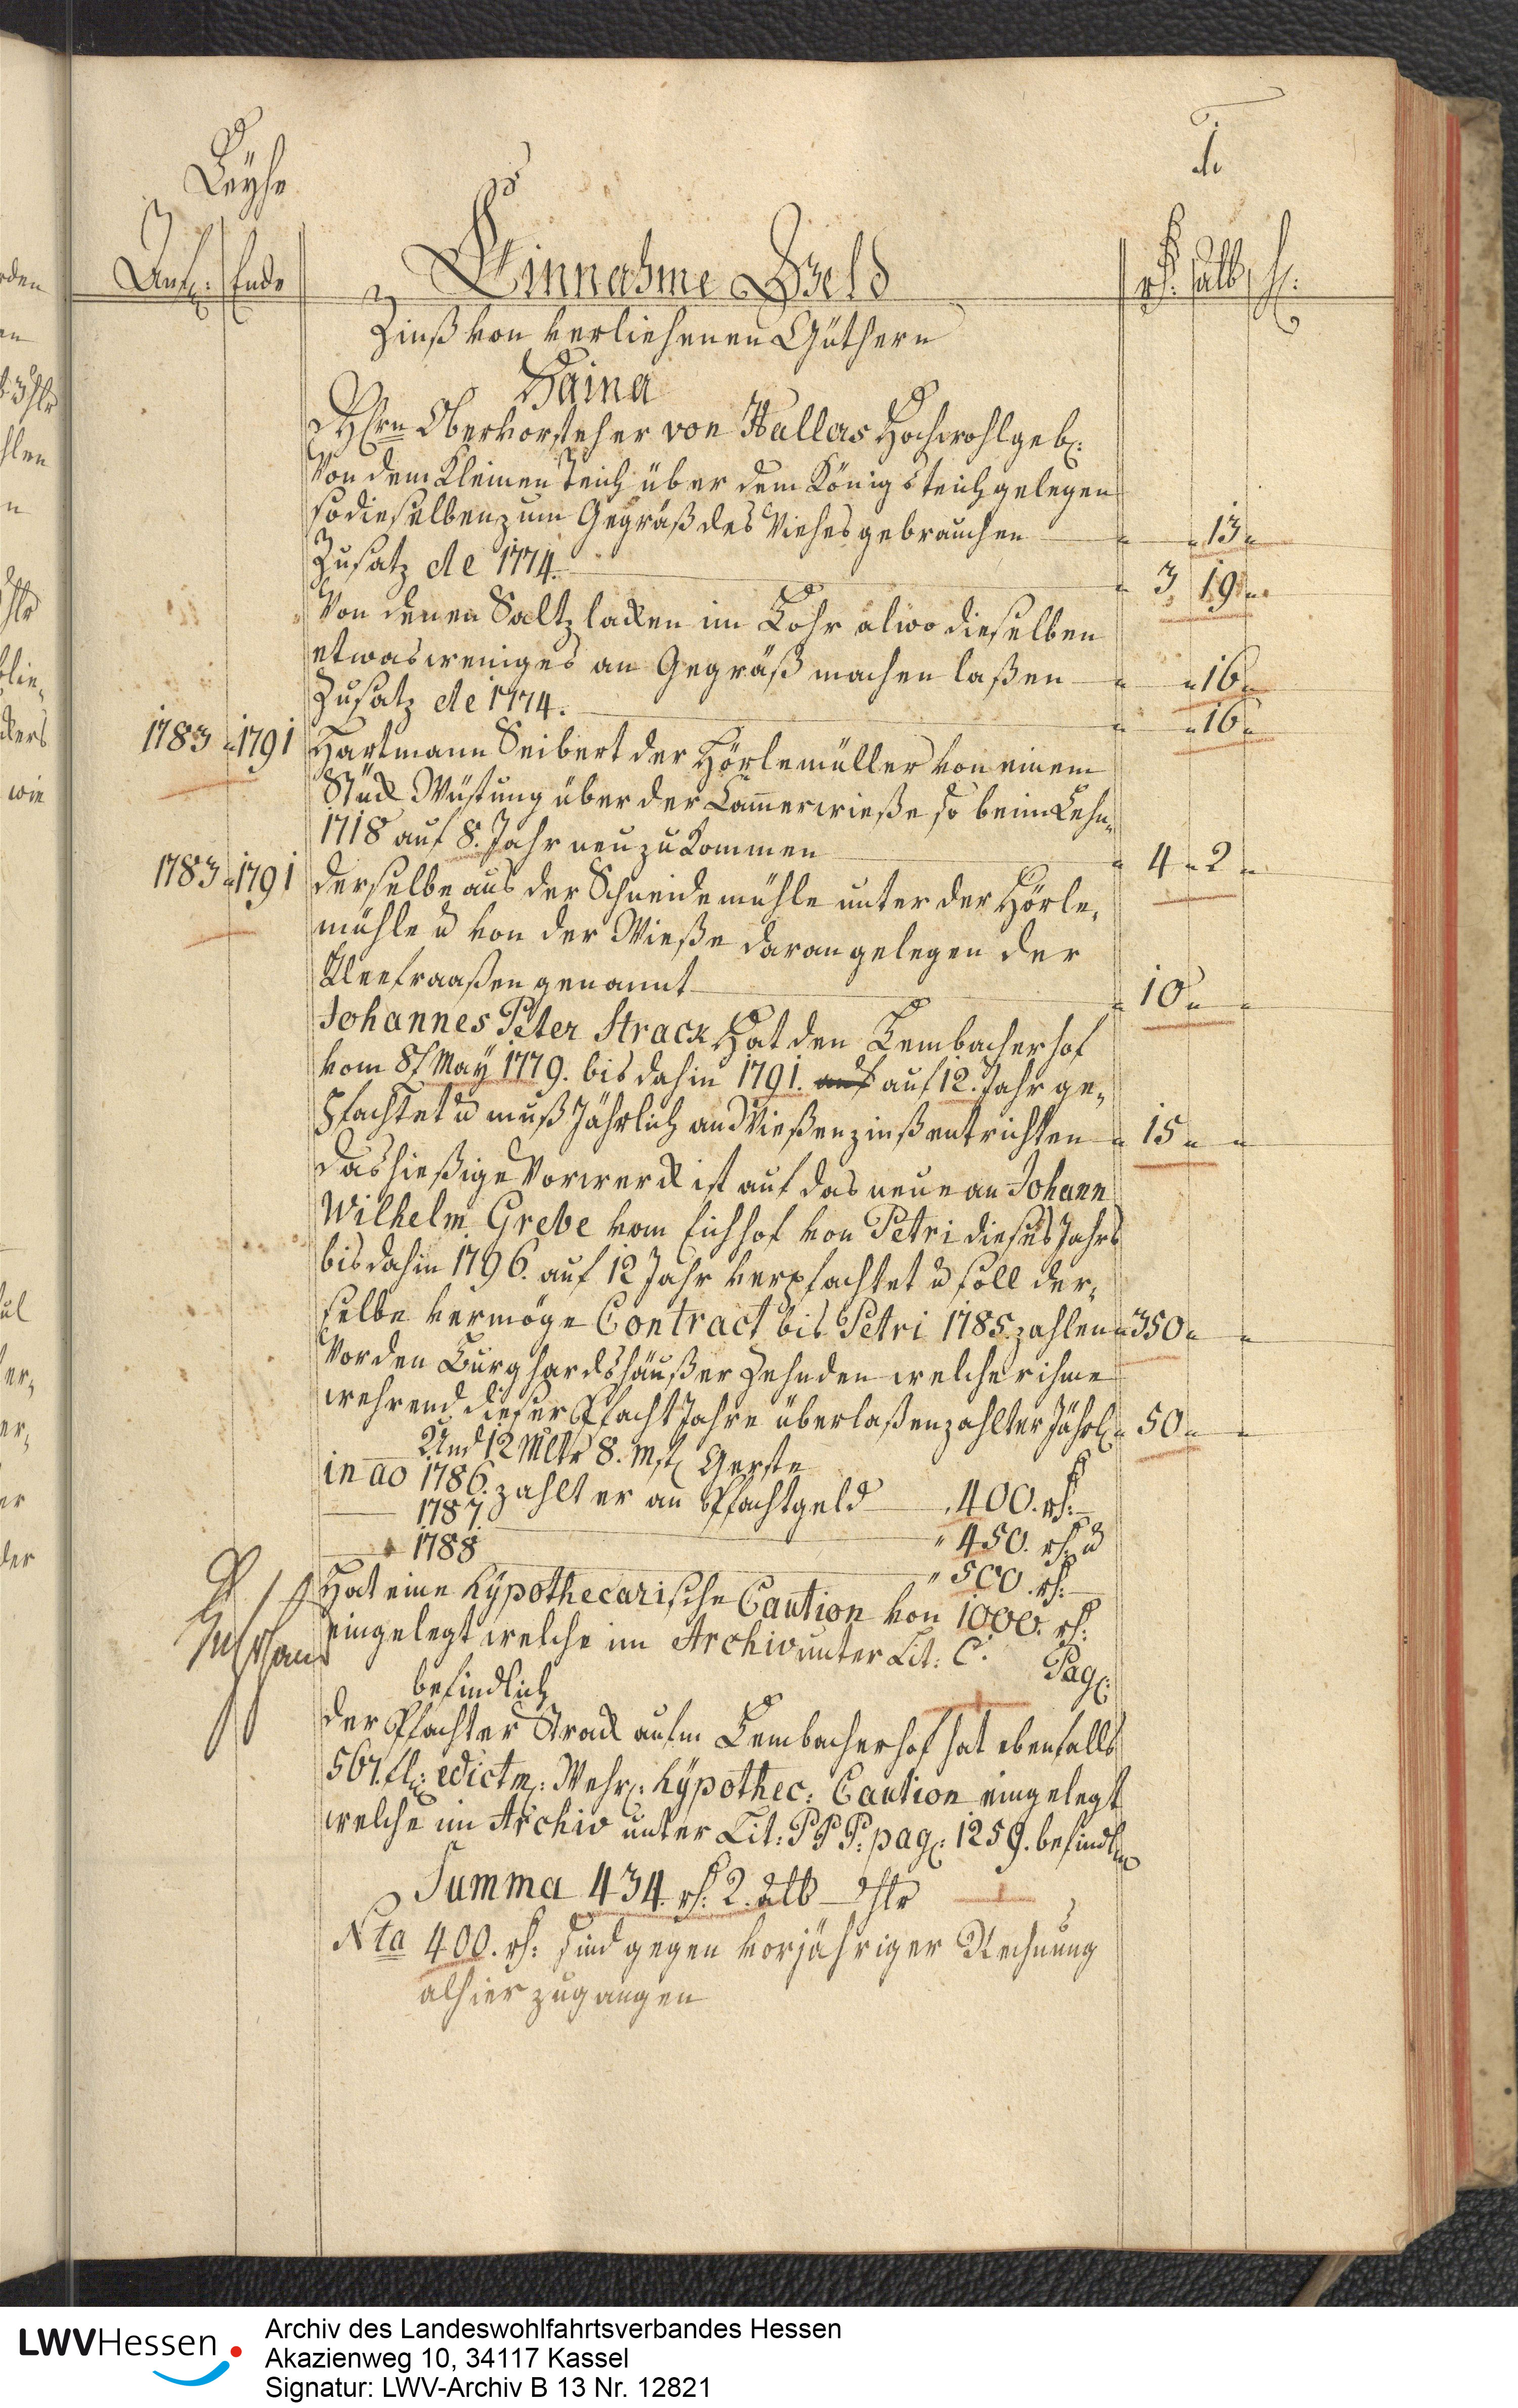 1.
Leyhe
Anf: Ende
Einnahme Geld
rh: alb hl:
Zinß von verliehenen Güthern
Haina
Hhrn Obervorsteher von Stallers Hochwohlgeb:
Von dem Kleinen Teich über dem Königsteich gelegen
so dieselben zum Gegräß des Viehes gebrauchen " " 13 "
Zusatz de 1774. " 3 19 "
Von denen Saltzlacken im Lohr alwo dieselben
etwas weniges an Gegräß machen laßen " " 16 "
Zusatz de 1774. " " 16 "
1783 " 1791 Hartmann Seibert der Hörlemüller von einem
Stück Wüstung über der Cam̅erwieße so beim Lehn
1718 auf 8. Jahr neu zu Kommen " 4 " 2 "
1783 " 1791 derselbe aus der Schneidemühle unter der Hörle,
mühle u von der Wieße daran gelegen der
genannt " 10 " "
Johannes Peter Strack Hat den Lembacherhof
vom 8t May 1779. bis dahin 1791. auf 12. Jahr ge,
Pfachtet u muß Jährlich an Wießenzinß entrichten " 15 " "
das hießige Vorwerck ist auf das neue an Johann
Wilhelm Grebe vom Eichhof von Petri dieses Jahrs
bis dahin 1796. auf 12 Jahr verpfachtet u soll der,
selbe vermöge Contract bis Petri 1785. zahlen " 350 " "
Vor den Burghardshäußer Zehnden welcher ihme
wehrend dieser Pfacht Jahre überlaßen zahlt er Jährl: " 50 " "
Und 12 Mltr 8. Mst Gerste
in ao 1786. zahlt er an Pfachtgeld " 400. rh:
— 1787. " 450. rh: u
— 1788 " 500. rh:
Hat eine hypothecarische Caution von 1000. rh:
eingelegt welche im Archiv unter Lit: C. Pag:
befindlich
der Pfachter Strack aufm Lembacherhof hat ebenfalls
567. fl: edictm: Wehr: hypothec: Caution eingelegt
welche im Archiv unter Lit: PPP: pag: 1259. befindl
Summa 434. rh: 2. alb — hlr
Nta 400. rh: sind gegen vorjähriger Rechnung
alhier zugangen
LWVHessen
Archiv des Landeswohlfahrtsverbandes Hessen
Akazienweg 10, 34117 Kassel
Signatur: LWV-Archiv B 13 Nr. 12821